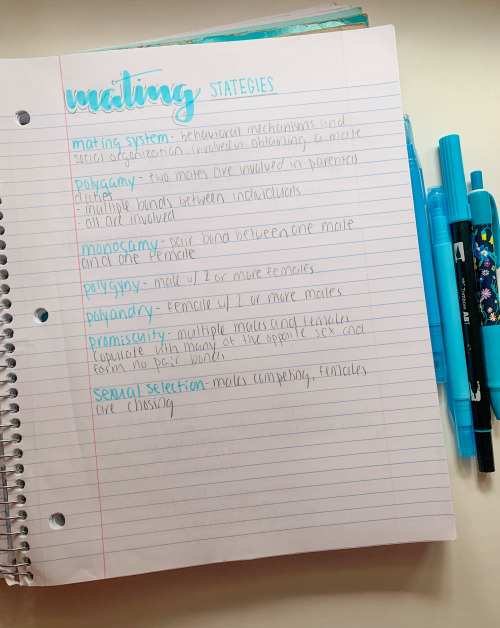 mating STATEGIES
mating system - behavioral mechanisms and
social organization involved in obtaining a mate
polygamy - two mates are involved in parental
duties
- multiple bonds between individuals
all are involved
monogamy - pair bond between one male
and one female
polygyny - male w/ 2 or more females
polyandry - female w/ 2 or more males
promiscuity - multiple males and females
copulate with many of the opposite sex and
form no pair bonds
sexual selection - males competing, females
are chosing